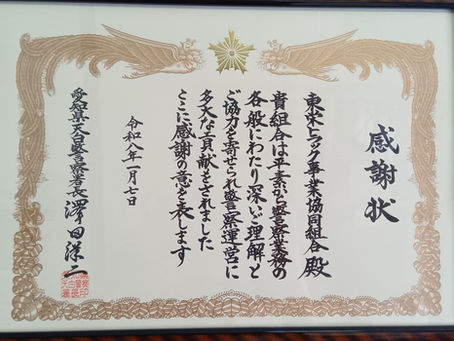 感謝状
東栄トラック事業協同組合 殿
貴組合は平素から警察業務の
各般にわたり深いご理解と
ご協力を寄せられ警察運営に
多大な貢献をされました
ここに感謝の意を表します
令和八年一月七日
愛知県天白警察署長 澤田洋二